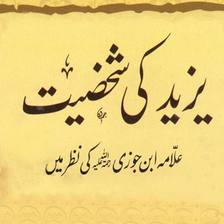 یزید کی شخصیت
علّامہ ابن جوزی رحمۃ اللہ علیہ کی نظر میں